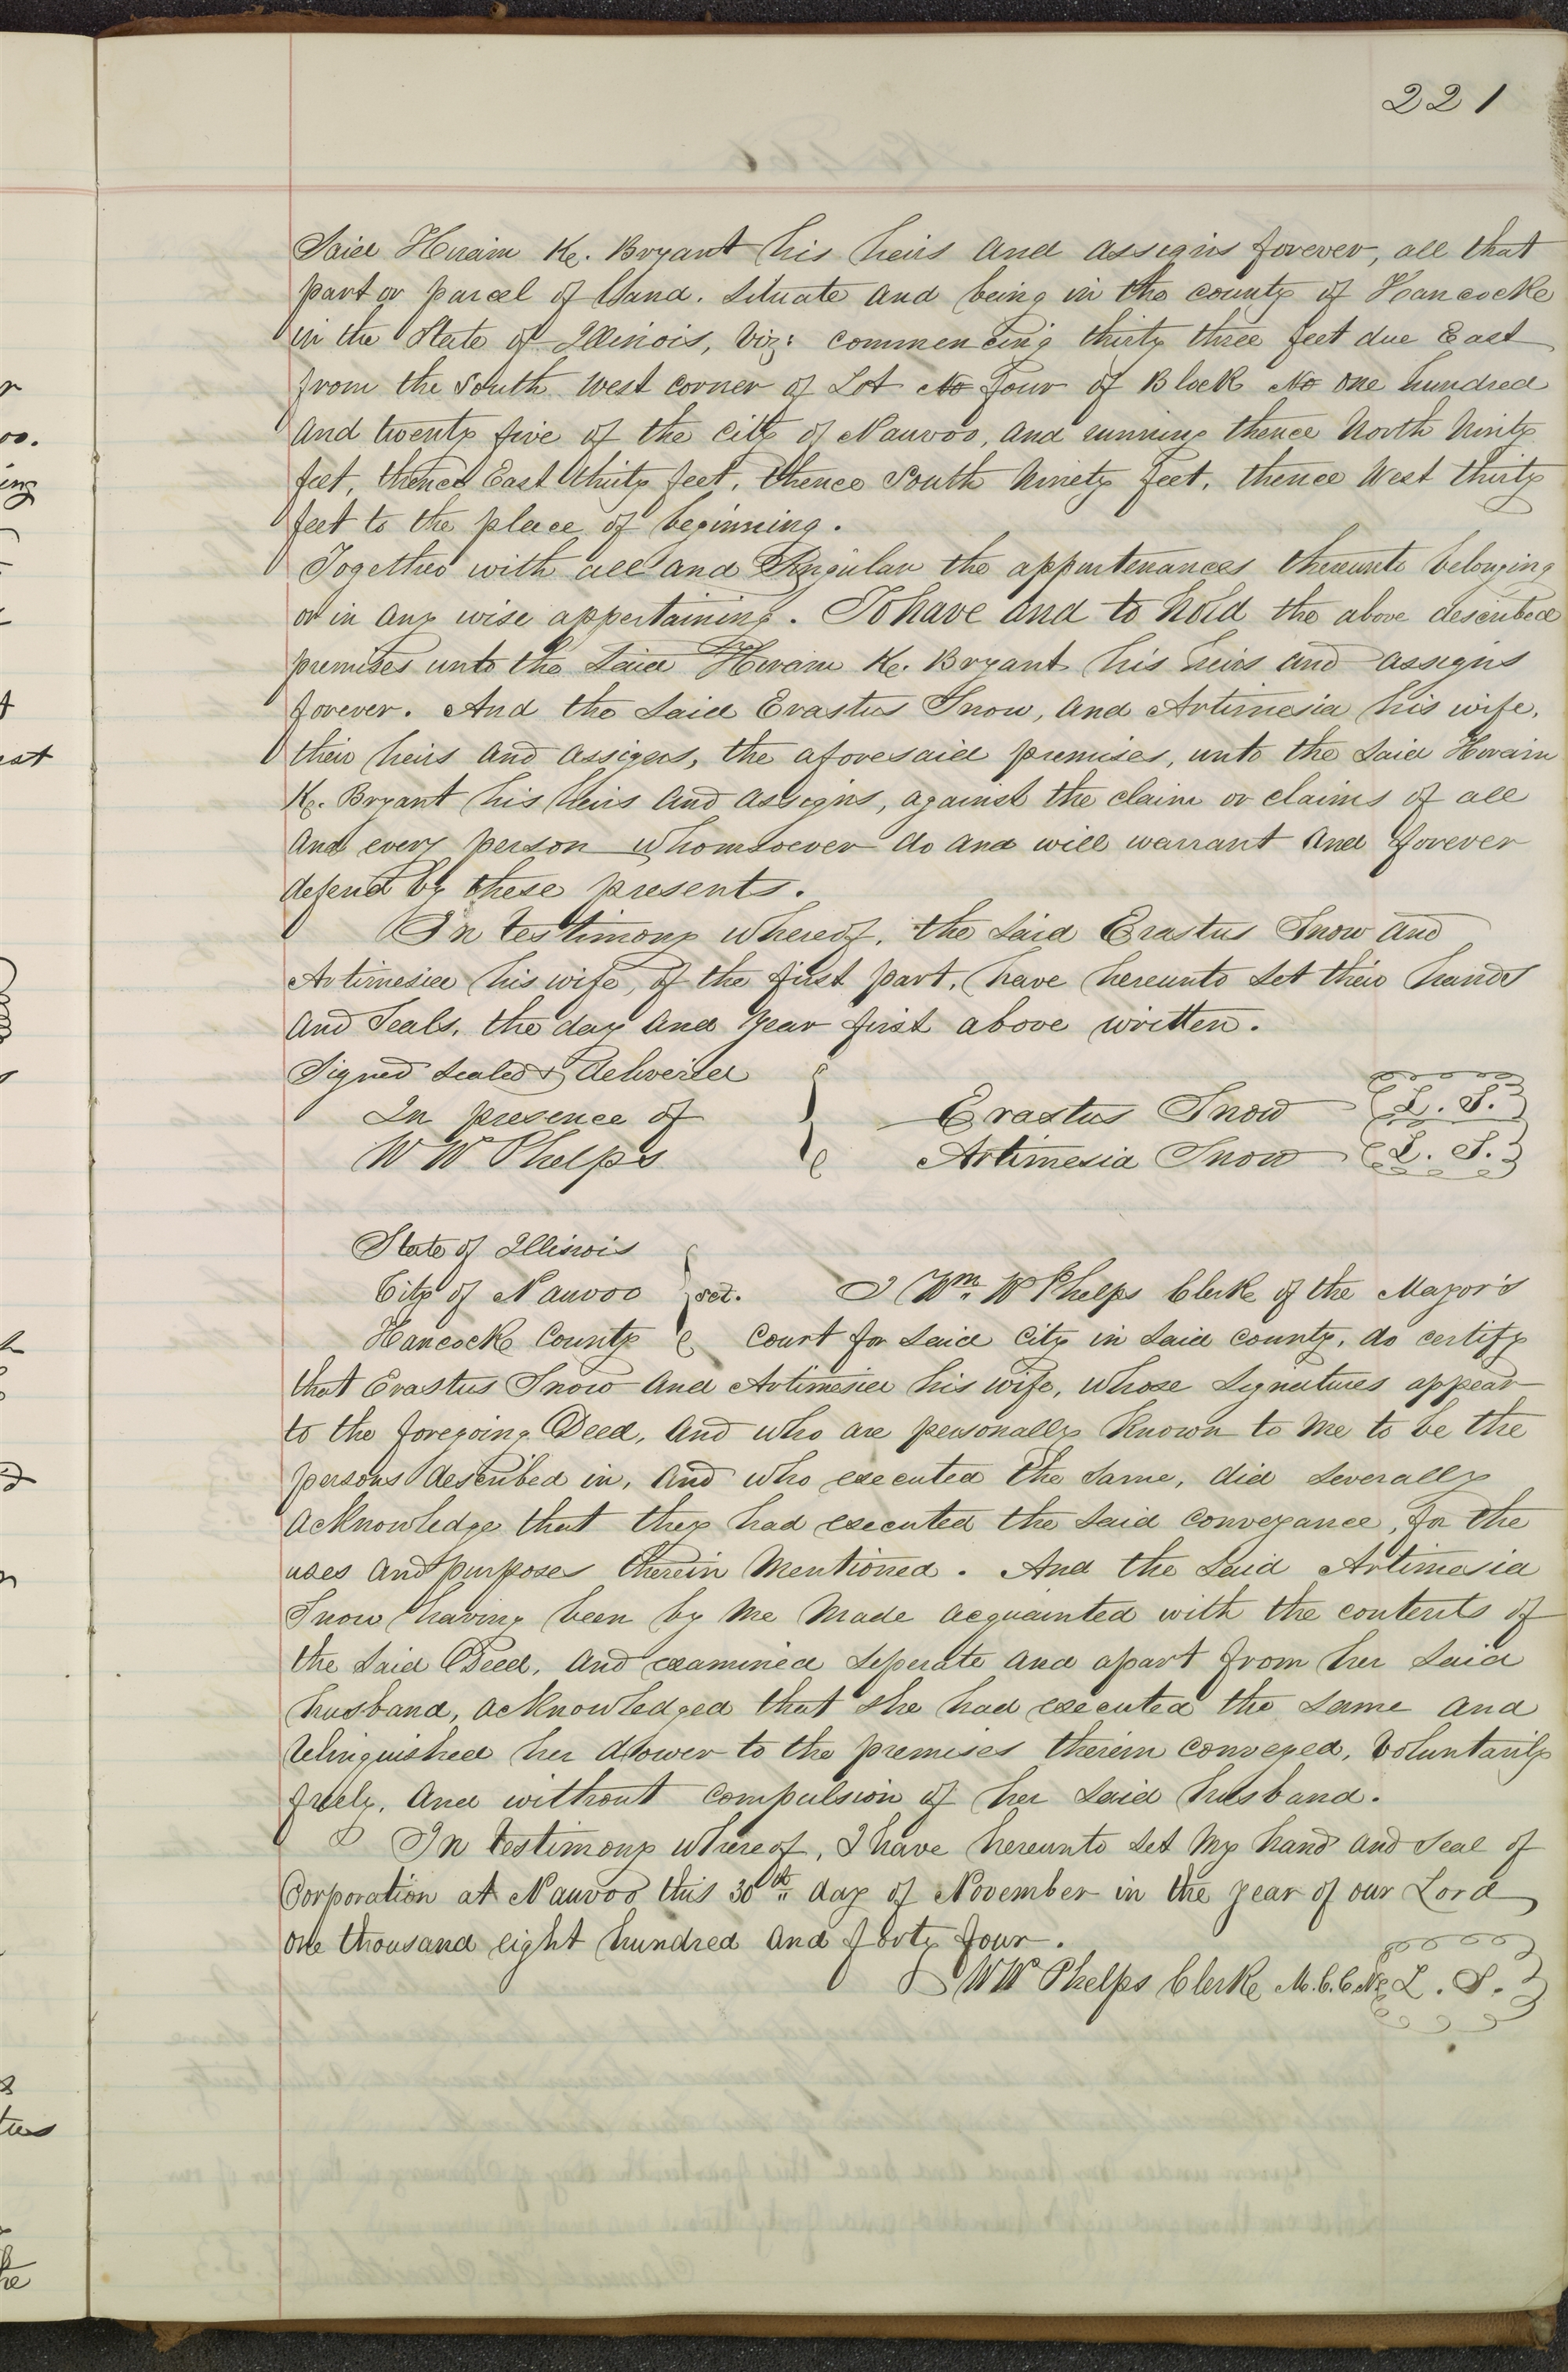 221
Said Hiram K. Bryant his heirs and assigns forever, all that
part or parcel of Land. Situate and being in the county of Hancock
in the State of Illinois, Viz: commencing thirty three feet due East
from the South West corner of Lot No Four of Block No one hundred
and twenty five of the City of Nauvoo, and running thence North Ninty
feet, thence East thirty feet, thence South Ninety feet, thence West thirty
feet to the place of beginning.
Together with all and Singular the appurtenances thereunto belonging
or in any wise appertaining. To have and to hold the above described
premises unto the Said Hiram K. Bryant his heirs and assigns
forever. And the Said Erastus Snow, and Artimesia his wife,
their heirs and assigns, the aforesaid premises, unto the Said Hiram
K. Bryant his heirs and assigns, against the claim or claims of all
and every person whomsoever do and will warrant and forever
defend by these presents.
In testimony whereof, the Said Erastus Snow and
Artimesia his wife, of the first part, have hereunto Set their hands
and Seals, the day and Year first above written.
Signed Sealed & delivered
In presence of
Erastus Snow L. S.
W W Phelps
Artimesia Snow L. S.
State of Illinois
City of Nauvoo sct. I Wm. W Phelps Clerk of the Mayor's
Hancock County Court for Said City in Said county, do certify
that Erastus Snow and Artimesia his wife, whose Signatures appear
to the foregoing Deed, and who are personally Known to me to be the
persons described in, and who executed the Same, did Severally
acknowledge that they had executed the Said conveyance, for the
uses and purposes therein Mentioned. And the Said Artimesia
Snow having been by me made acquainted with the contents of
the Said Deed, and examined Seperate and apart from her Said
husband, acknowledged that she had executed the Same and
relinquished her dower to the premises therein conveyed, Voluntarily
freely, and without compulsion of her Said husband.
In testimony whereof, I have hereunto Set My hand and Seal of
Corporation at Nauvoo this 30th day of November in the year of our Lord
one thousand eight hundred and forty four.
W W Phelps Clerk M.C.C.N. L. S.